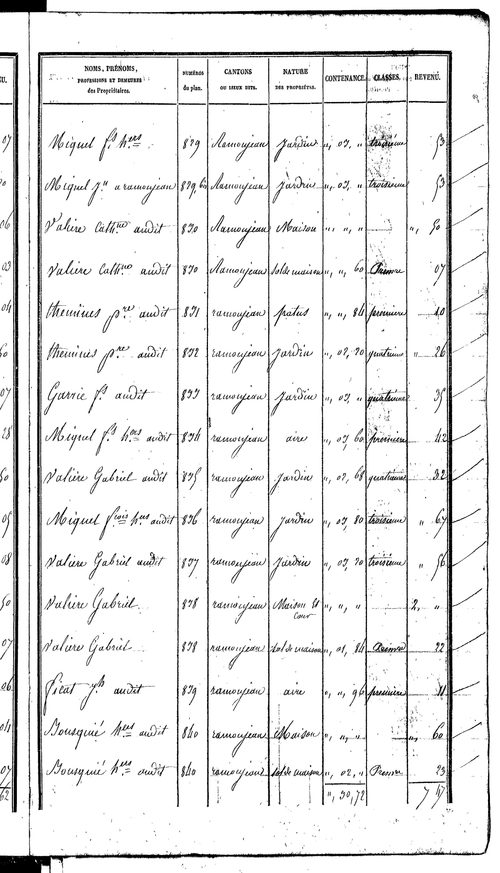 NOMS, PRÉNOMS, PROFESSIONS ET DEMEURES des Propriétaires. NUMÉROS du plan. CANTONS OU LIEUX DITS. NATURE DES PROPRIÉTÉS. CONTENANCE. CLASSES. REVENU.
Miquel fs hers 829 Ramonjean Jardin ,, 03, ,, troisième 53
Miquel jn a ramonjean 829 bis Ramonjean Jardin ,, 03, ,, troisième 53
Valière Cathne audit 830 Ramonjean Maison ,, ,, ,, ,, 50
Valière Cathne audit 830 Ramonjean sol de maison ,, ,, 60 Premre 07
themines pre audit 831 ramonjean patus ,, ,, 84 premiere 10
themines pre audit 832 ramonjean Jardin ,, 02, 20 quatrieme ,, 26
Garric fs audit 833 ramonjean Jardin ,, 03, ,, quatrieme 35
Miquel fs hers audit 834 ramonjean aire ,, 03, 60 premiere 42
Valière Gabriel audit 835 ramonjean Jardin ,, 02, 68 quatrieme 32
Miquel fcois hers audit 836 ramonjean Jardin ,, 03, 80 troisieme ,, 67
Valiere Gabriel audit 837 ramonjean Jardin ,, 03, 20 troisième ,, 56
Valiere Gabriel 838 ramonjean Maison et Cour ,, ,, ,, 2, ,,
Valiere Gabriel 838 ramonjean sol de maison ,, 01, 84 Premre 22
ficat jh audit 839 ramonjean aire ,, ,, 96 premiere 11
Bousquié hers audit 840 ramonjean Maison ,, ,, ,, ,, 60
Bousquié hers audit 840 ramonjean sol de maison ,, 02, ,, Premre 23
,, 30, 72 7